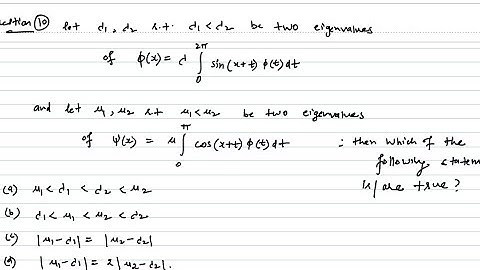 Question 10 let λ₁, λ₂ s.t. λ₁ < λ₂ be two eigenvalues
of φ(x) = λ ∫₀^2π sin(x+t) φ(t) dt
and let μ₁, μ₂ s.t μ₁ < μ₂ be two eigenvalues
of ψ(x) = μ ∫₀^π cos(x+t) φ(t) dt : then which of the
following statem
is/are true?
(a) μ₁ < λ₁ < λ₂ < μ₂
(b) λ₁ < μ₁ < μ₂ < λ₂
(c) |μ₁ - λ₁| = |μ₂ - λ₂|
(d) |μ₁ - λ₁| = 2|μ₂ - λ₂|.